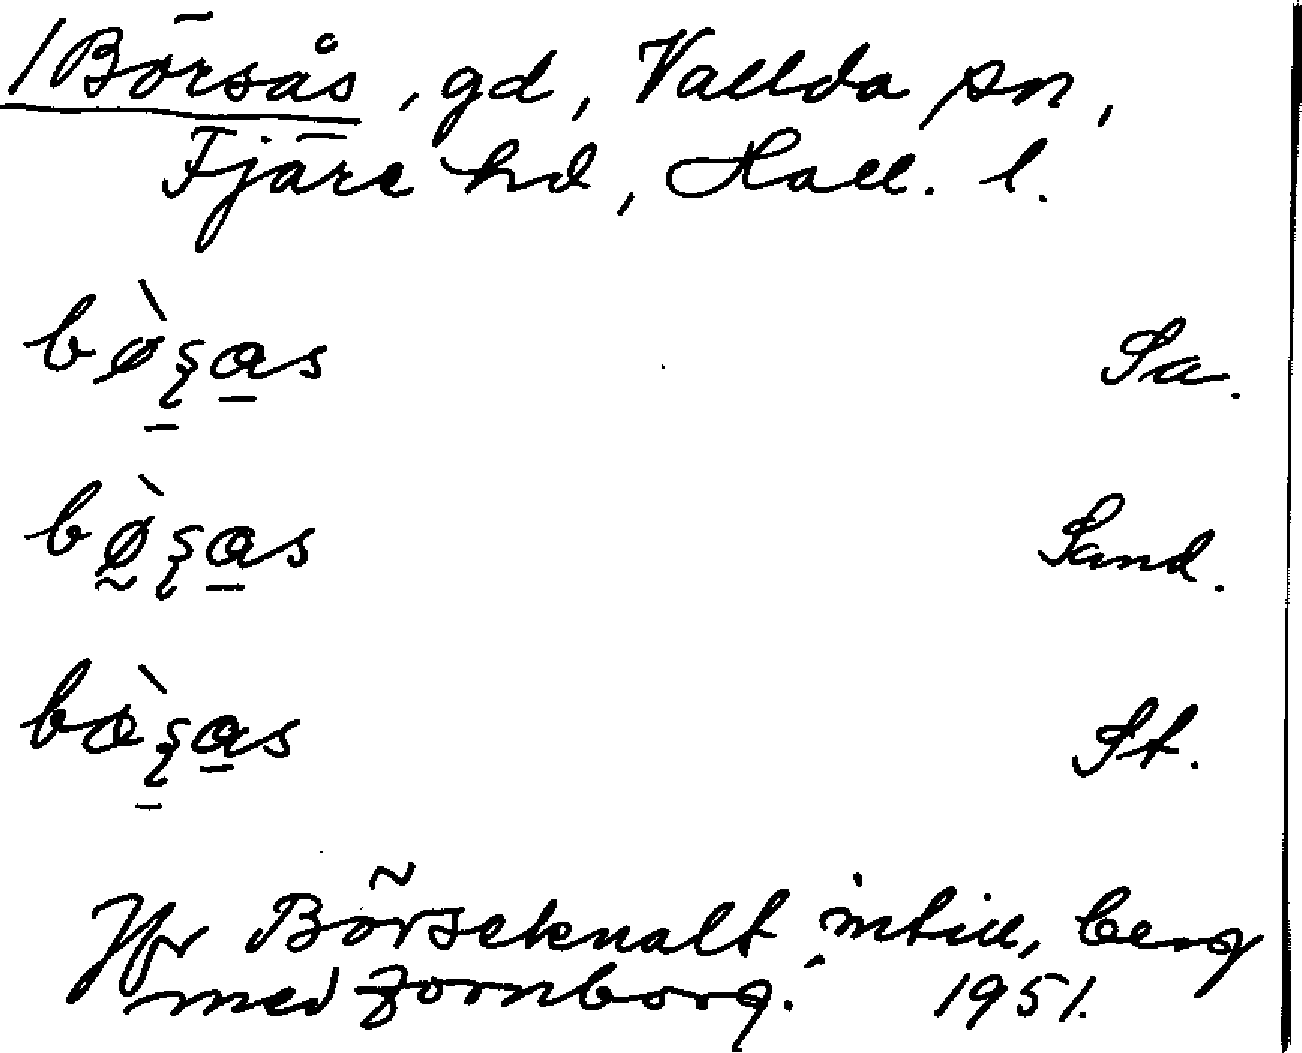 /Börsås, gd, Vallda sn,
Fjäre hd, Hall. l.
bø̀ʂas Sa.
bø̀ʂas Sand.
bœ̀ʂas St.
Jfr Börseknalt intill, berg
med fornborg. 1951.